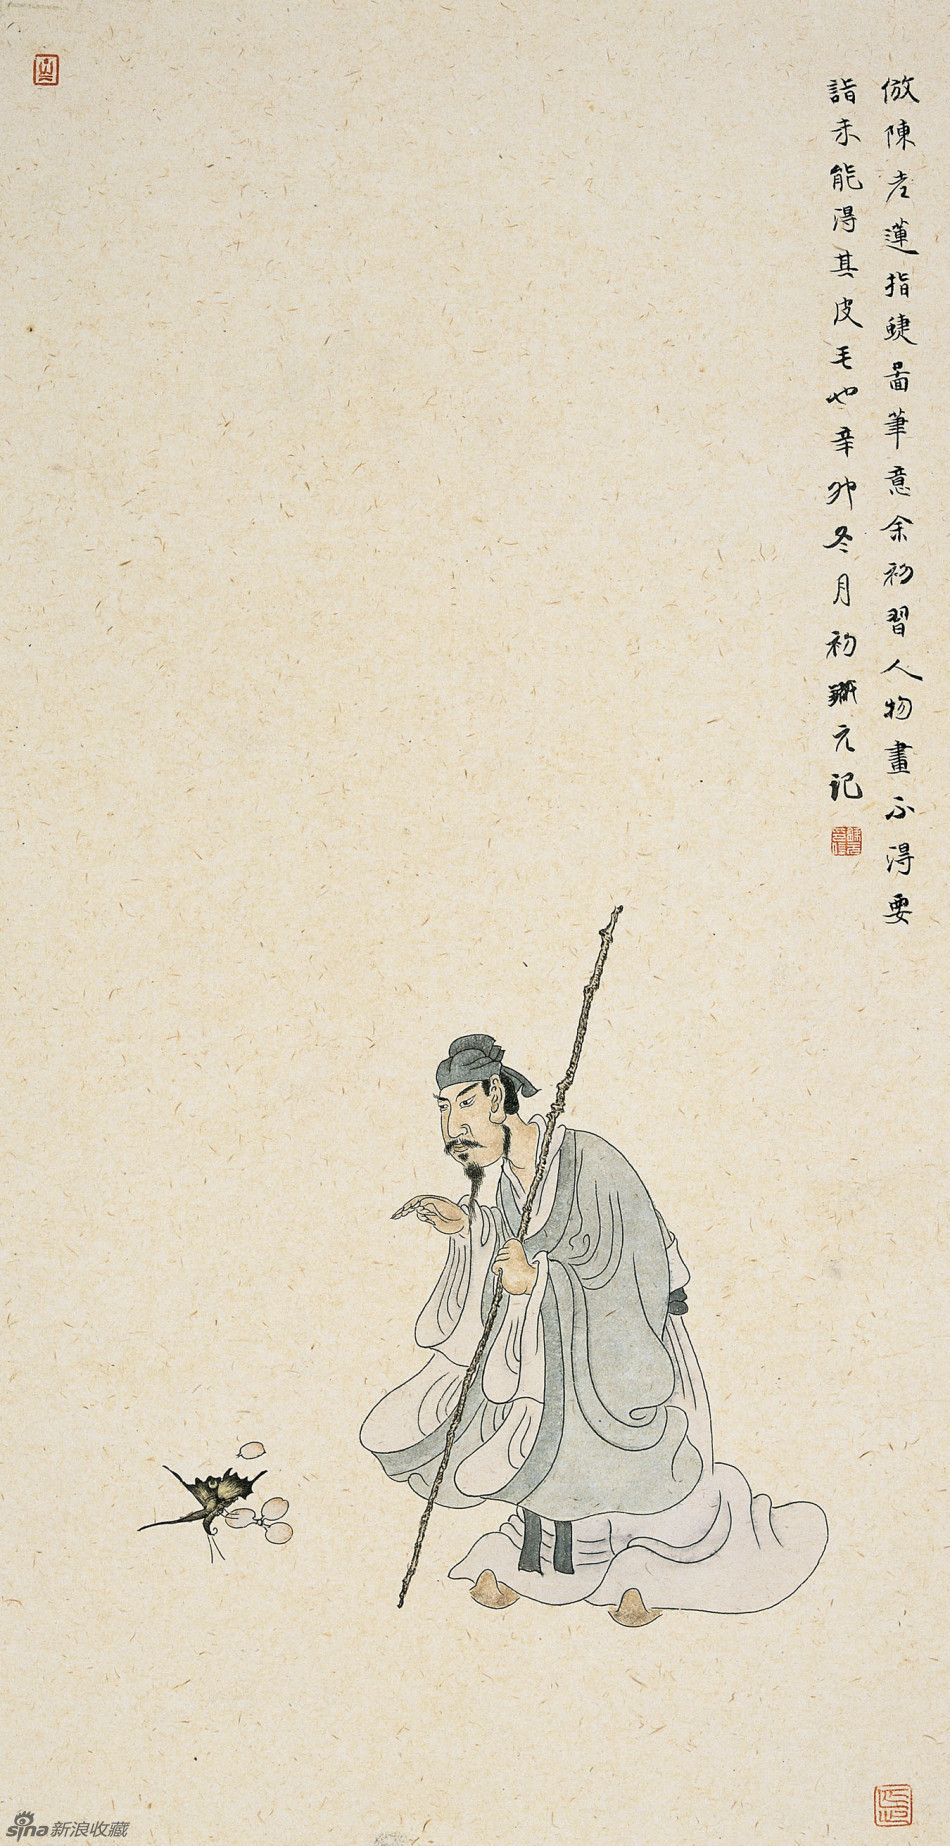 倣陳老蓮指蜨啚筆意余初習人物畫不得要
詣未能得其皮毛也辛卯冬月初元记
sina新浪收藏